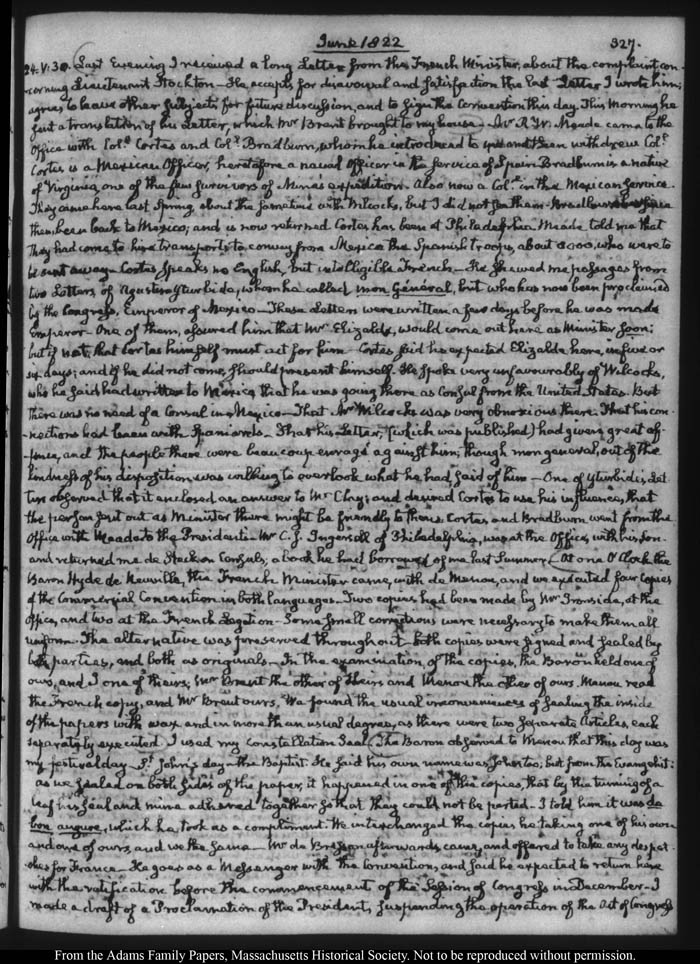 June 1822
327.
24. V:30. Last Evening I received a long Letter from the French Minister, about the complaint con-
-cerning Lieutenant Stockton — He accepts for disavowal and satisfaction the last Letter I wrote him;
agrees to leave other subjects for future discussion, and to sign the Convention this day. This morning he
sent a translation of his Letter, which Mr Brent brought to my house — Mr R. W. Meade came to the
Office with Coll. Cortes and Coll. Bradburn, whom he introduced to me and then withdrew Coll.
Cortes is a Mexican Officer, heretofore a naval Officer in the service of Spain Bradburn is a native
of Virginia, one of the few survivors of Mina's expedition. Also now a Coll. in the Mexican service.
They came here last Spring about the same time with Wilcocks, but I did not see them. Bradburn has since
then been back to Mexico; and is now returned Cortes has been at Philadelphia Meade told me that
they had come to hire transports to convey from Mexico the Spanish troops, about 3000, who were to
be sent away — Cortes speaks no English, but intelligible French — He shewed me passages from
two Letters, of Agustin Yturbide, whom he called mon Général, but who has now been proclaimed
by the Congress, Emperor of Mexico — These Letters were written a few days before he was made
Emperor — One of them, assured him that Mr Elizalde, would come out here as Minister soon;
but if not, that Cortes himself must act for him — Cortes said he expected Elizalde here, in five or
six days; and if he did not come, should present himself. He spoke very unfavourably of Wilcocks,
who he said had written to Mexico that he was going there as Consul from the United States. But
there was no need of a Consul in Mexico — That Mr Wilcocks was very obnoxious there. That his con-
-nections had been with Spaniards — That his Letter, (which was published) had given great of-
-fence, and the people there were beaucoup enragé against him; though mon general, out of the
kindness of his disposition was willing to overlook what he had said of him — One of Yturbide's Let
ters observed that it enclosed an answer to Mr Clay; and desired Cortes to use his influence, that
the person sent out as Minister there might be friendly to theirs. Cortes and Bradburn went from the
Office with Meade to the President. Mr C. J. Ingersoll of Philadelphia, was at the Office, with his Son
and returned me de Steck on Consuls; a book he had borrowed of me last Summer. At one O'Clock the
Baron Hyde de Neuville, the French Minister came, with de Menou, and we executed four copies
of the Commercial Convention in both languages. Two copies had been made by Mr Ironside, at the
office, and two at the French Legation — Some small corrections were necessary to make them all
uniform. The alternative was preserved throughout both copies were signed and sealed by
both parties, and both as originals — In the examination of the copies, the Baron held one of
ours, and I one of theirs; Mr Brent the other of theirs and Menou the other of ours. Menou read
the French copy, and Mr Brent ours. We found the usual inconveniences of sealing the inside
of the papers with wax and in more than usual degree, as there were two separate Articles, each
separately executed I used my Constellation Seal. The Baron observed to Menou that this day was
my festival day — St. John's day — the Baptist. He said his own name was John too; but from the Evangelist:
as we sealed on both sides of the paper, it happened in one of the copies, that by the turning of a
leaf his seal and mine adhered together so that they could not be parted — I told him it was de
bon augure, which he took as a compliment. We interchanged the copies he taking one of his own
and one of ours, and we the same — Mr de Bresson afterwards came, and offered to take any despat-
ches for France — He goes as a Messenger with the Convention, and said he expected to return here
with the ratification before the commencement of the Session of Congress in December — I
made a draft of a Proclamation of the President, suspending the operation of the Act of Congress
From the Adams Family Papers, Massachusetts Historical Society. Not to be reproduced without permission.